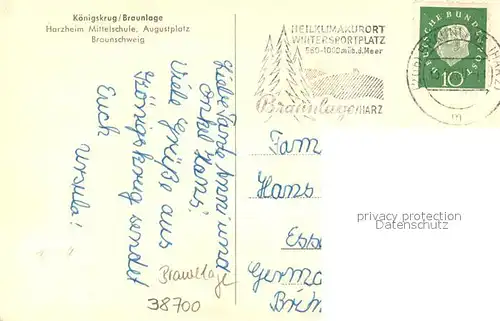 Königskrug/Braunlage
Harzheim Mittelschule, Augustplatz
Braunschweig
HEILKLIMAKURORT
WINTERSPORTPLATZ
560-1000 m üb. d. Meer
Braunlage/HARZ
DEUTSCHE BUNDESPOST
10
Liebe Tante Anni und
Onkel Hans!
Viele Grüße aus
Königskrug sendet
Euch
Ursula!
Fam
Hans
Esse
Germa
Braunlage
38700
privacy protection
Datenschutz